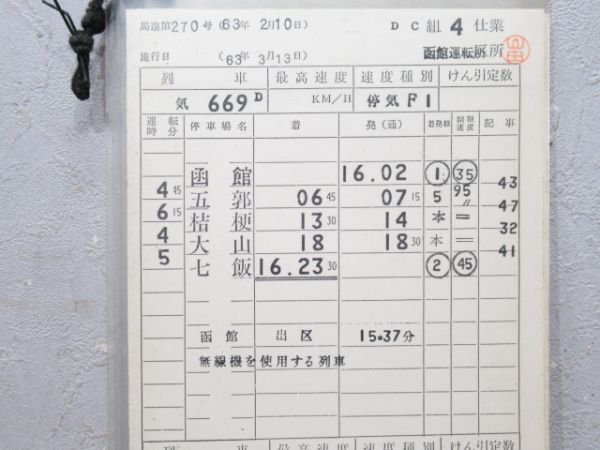 局達第270号 (63年 2月10日) DC組 4 仕業
施行日 (63年 3月13日) 函館運転所
列 車 最高速度 速度種別 けん引定数
気 669D KM/H 停気F1
運転時分 停車場名 着 発(通) 着発線 制限速度 記事
函館 16.02 ① ㉟
4 45 五郭 06 45 07 15 5 95 〃 43
6 15 桔梗 13 30 14 本 = 47
4 大山 18 18 30 本 = 32
5 七飯 16.23 30 ② ㊺ 41
函館 出区 15.37分
無線機を使用する列車
列 車 最高速度 速度種別 けん引定数